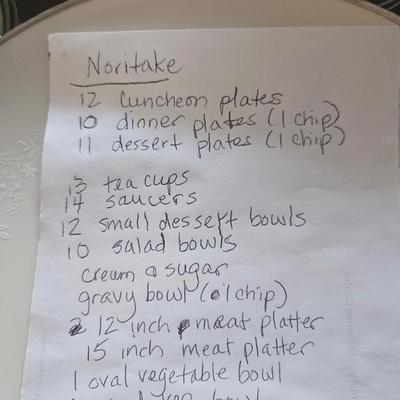 Noritake
12 luncheon plates
10 dinner plates (1 chip)
11 dessert plates (1 chip)
13 tea cups
14 saucers
12 small dessert bowls
10 salad bowls
cream & sugar
gravy bowl (1 chip)
12 inch meat platter
15 inch meat platter
1 oval vegetable bowl
bowl